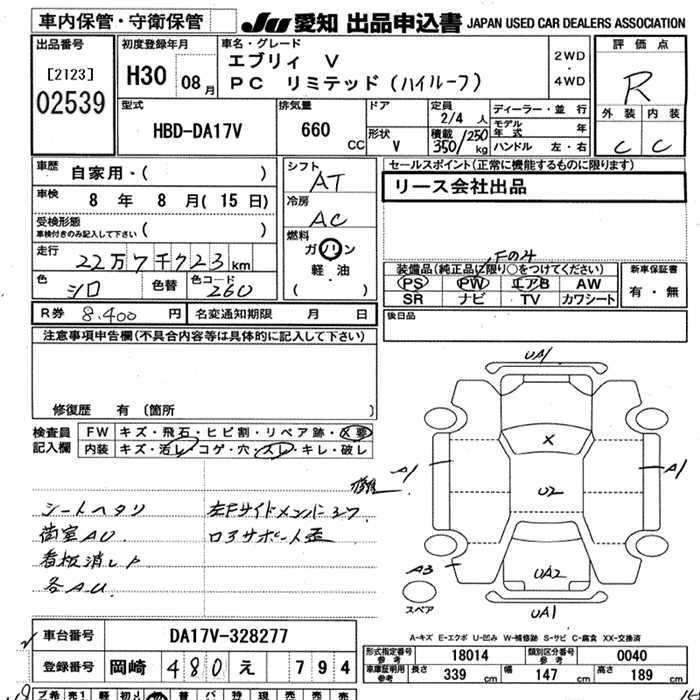 車内保管・守衛保管 JU 愛知 出品申込書 JAPAN USED CAR DEALERS ASSOCIATION
出品番号 初度登録年月 車名・グレード 評価点
[2123] H30 08月 エブリィ V 2WD・4WD R
02539 PC リミテッド(ハイルーフ)
型式 排気量 ドア 定員 ディーラー・並行 外装 内装
HBD-DA17V 660 CC 形状 V 2/4 人 モデル年式 年 C C
積載 350/250 kg ハンドル 左・右
車歴 自家用・( ) シフト AT セールスポイント(正常に機能するものに限ります)
車検 8年 8月(15日) 冷房 AC リース会社出品
受検形態 車検付きのみ記入して下さい ( )
燃料 ガソリン 軽油 ( )
走行 22万7千723km
色 シロ 色替 色コード 260
Fのみ
装備品(純正品に限り○をつけてください) 新車保証書
PS PW エアB AW 有・無
SR ナビ TV カワシート
R券 8,400円 名変通知期限 月 日 後日品
注意事項申告欄(不具合内容等は具体的に記入して下さい)
修復歴 有(箇所 )
検査員記入欄 FW キズ・飛石・ヒビ割・リペア跡・X要
内装 キズ・汚レ・コゲ・穴・スレ・キレ・破レ
シートヘタリ
荷室AU
看板消し跡
各AU
修復
左Fサイドメンバーユフ
コアサポート歪
UA1
X
A1
A1
U2
A3
UA2
スペア
UA1
A-キズ E-エクボ U-凹み W-補修跡 S-サビ C-腐食 XX-交換済
車台番号 DA17V-328277
登録番号 岡崎 480 え 794
形式指定番号 参考 18014 類別区分番号 参考 0040
車庫証明用 参考 長さ 339 cm 幅 147 cm 高さ 189 cm